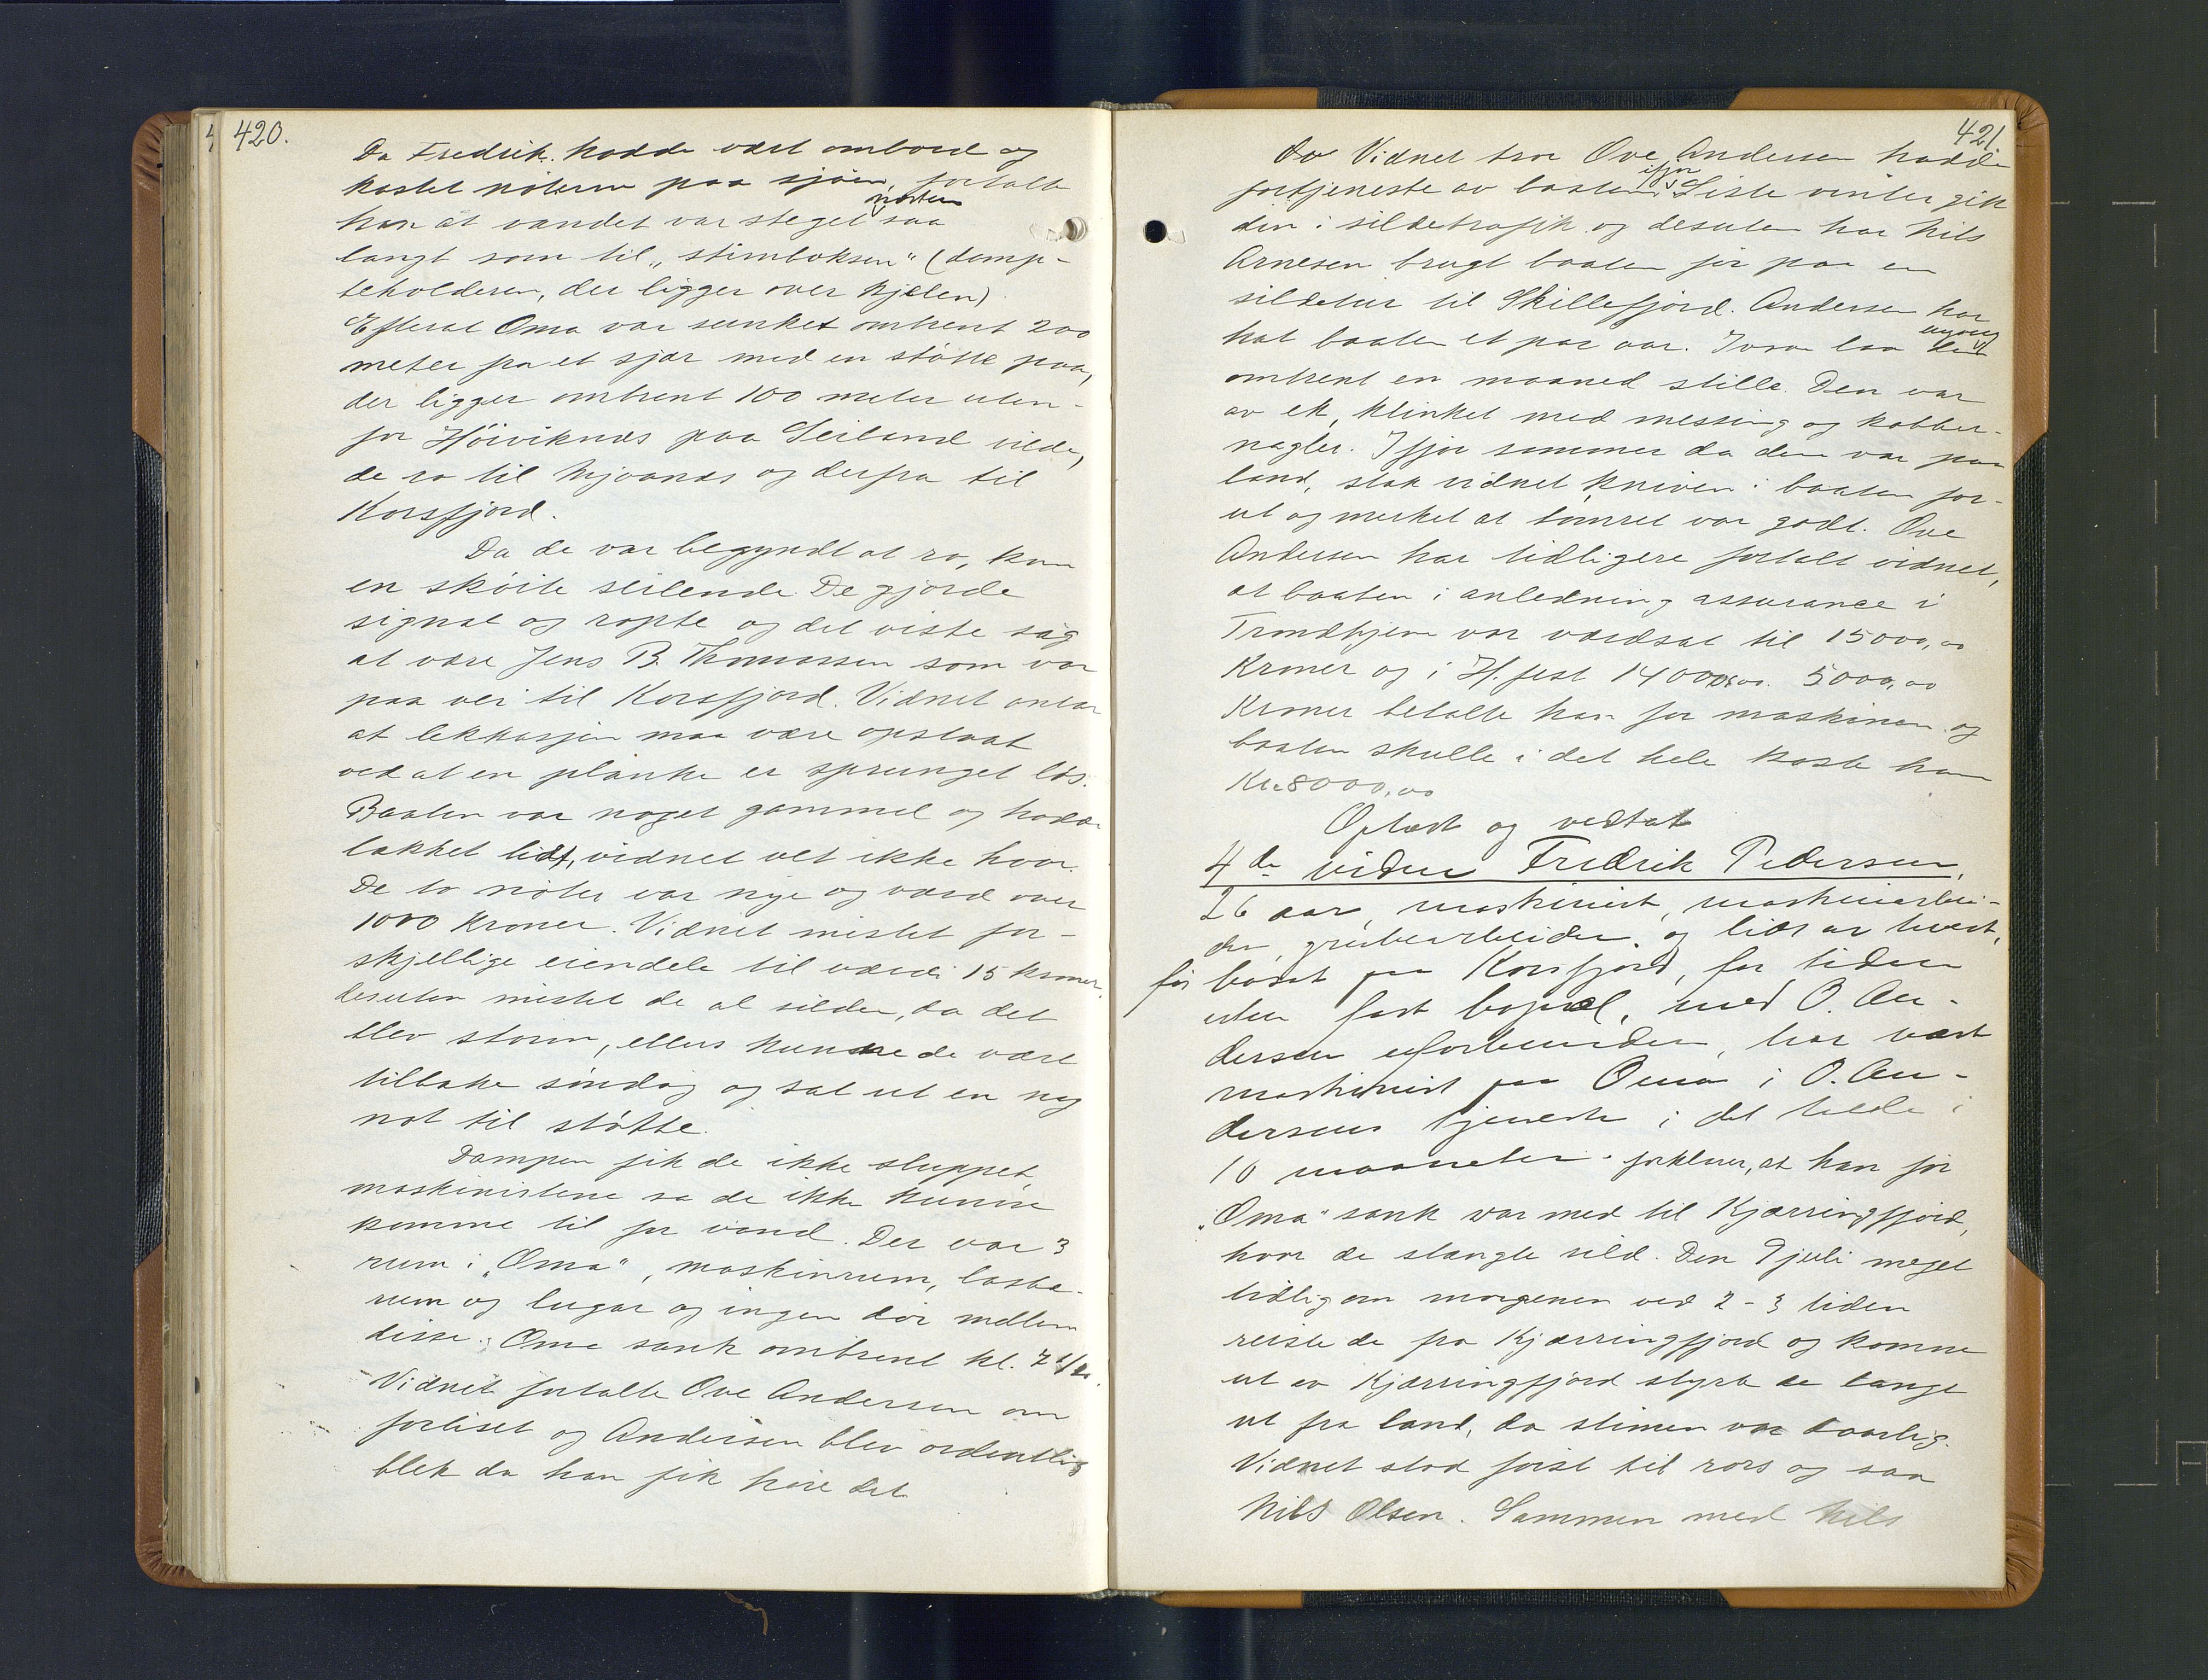 420.
Da Fredrik hadde vært ombord og
kastet nöterne paa sjöen, fortalte
næsten
han at vandet var steget saa
langt som til „stimboksen" (damp-
beholderen, der ligger over kjelen)
Efterat Oma var sunket omtrent 200
meter fra et sjær med en stötte paa,
der ligger omtrent 100 meter uten-
for Höiviknes paa Seiland vilde,
de ro til Mjoanes og derfra til
Korsfjord.
Da de var begyndt at ro, kom
en sköite seilende. De gjorde
signal og ropte og det viste sig
at være Jens B. Thomassen som var
paa vei til Korsfjord. Vidnet antar
at lekkasjen maa være opstaat
ved at en planke er sprunget lös.
Baaten var noget gammel og hadde
lækket lidt, vidnet vet ikke hvor.
De to nöter var nye og værd over
1000 kroner. Vidnet mistet for-
skjellige eiendele til værdi 15 kroner.
desuten mistet de al silden, da det
blev storm, ellers kunde de været
tilbake söndag og sat ut en ny
not til stötte.
Dampen fik de ikke sluppet,
maskinistene sa de ikke kunde
komme til for vand. Der var 3
rum i „Oma", maskinrum, laste-
rum og lugar og ingen dör mellem
disse. Oma sank omtrent kl. 7 1/2.
Vidnet fortalte Ove Andersen om
forliset og Andersen blev ordentlig
blek da han fik höre det
421.
Vidnet tror Ove Andersen hadde
ifjor
fortjeneste av baaten. Siste vinter gik
den i sildetrafik og desuten har Nils
Arnesen brugt baaten för paa en
sildetur til Skillefjord. Andersen har
hat baaten et par aar. Ivaar laa den
omtrent en maaned stille. Den var
av ek, klinket med messing og kobber-
nagler. Ifjor sommer da den var paa
land, stak vidnet kniven i baaten for-
ut og merket at tömret var godt. Ove
Andersen har tidligere fortalt vidnet,
at baaten i anledning assurance i
Trondhjem var værdsat til 15000,00
Kroner og i H.fest 14000,00. 5000,00
Kroner betalte han for maskinen og
baaten skulle i det hele koste ham
Kr. 8000,00
Oplæst og vedtat
4de vidne Fredrik Pedersen,
26 aar, maskinist, maskinarbei-
der, grubearbeider og litt av hvert,
för bosat paa Korsfjord, for tiden
uten fast bopæl, med O. An-
dersen uforbunden, har vært
maskinist paa Oma i O. An-
dersens tjeneste i det hele i
10 maaneder. forklarer, at han för
„Oma" sank var med til Kjærringfjord,
hvor de stængte sild. Den 9 juli meget
tidlig om morgenen ved 2-3 tiden
reiste de fra Kjærringfjord og komne
ut av Kjærringfjord styrte de langt
ut fra land, da stimen var daarlig.
Vidnet stod först til rors og saa
Nils Olsen. Sammen med Nils